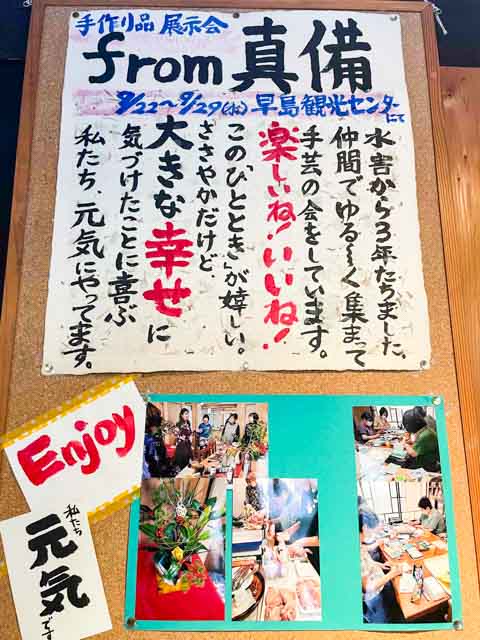 手作り品 展示会
from 真備
9/22〜9/29(水) 早島観光センターにて
水害から3年たちました。
仲間でゆる〜く集まって
手芸の会をしています。
楽しいね!いいね!
この「ひととき」が嬉しい。
ささやかだけど、
大きな幸せに
気づけたことに喜ぶ
私たち、元気にやってます。
Enjoy
私たち
元気です